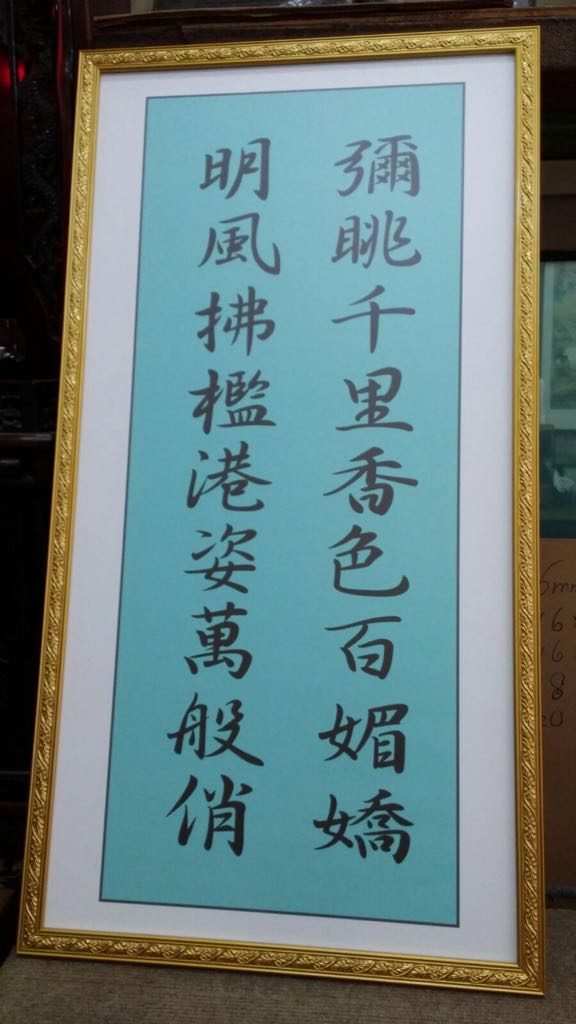 彌眺千里香色百媚嬌
明風拂檻港姿萬般俏
6mm
16
16
8